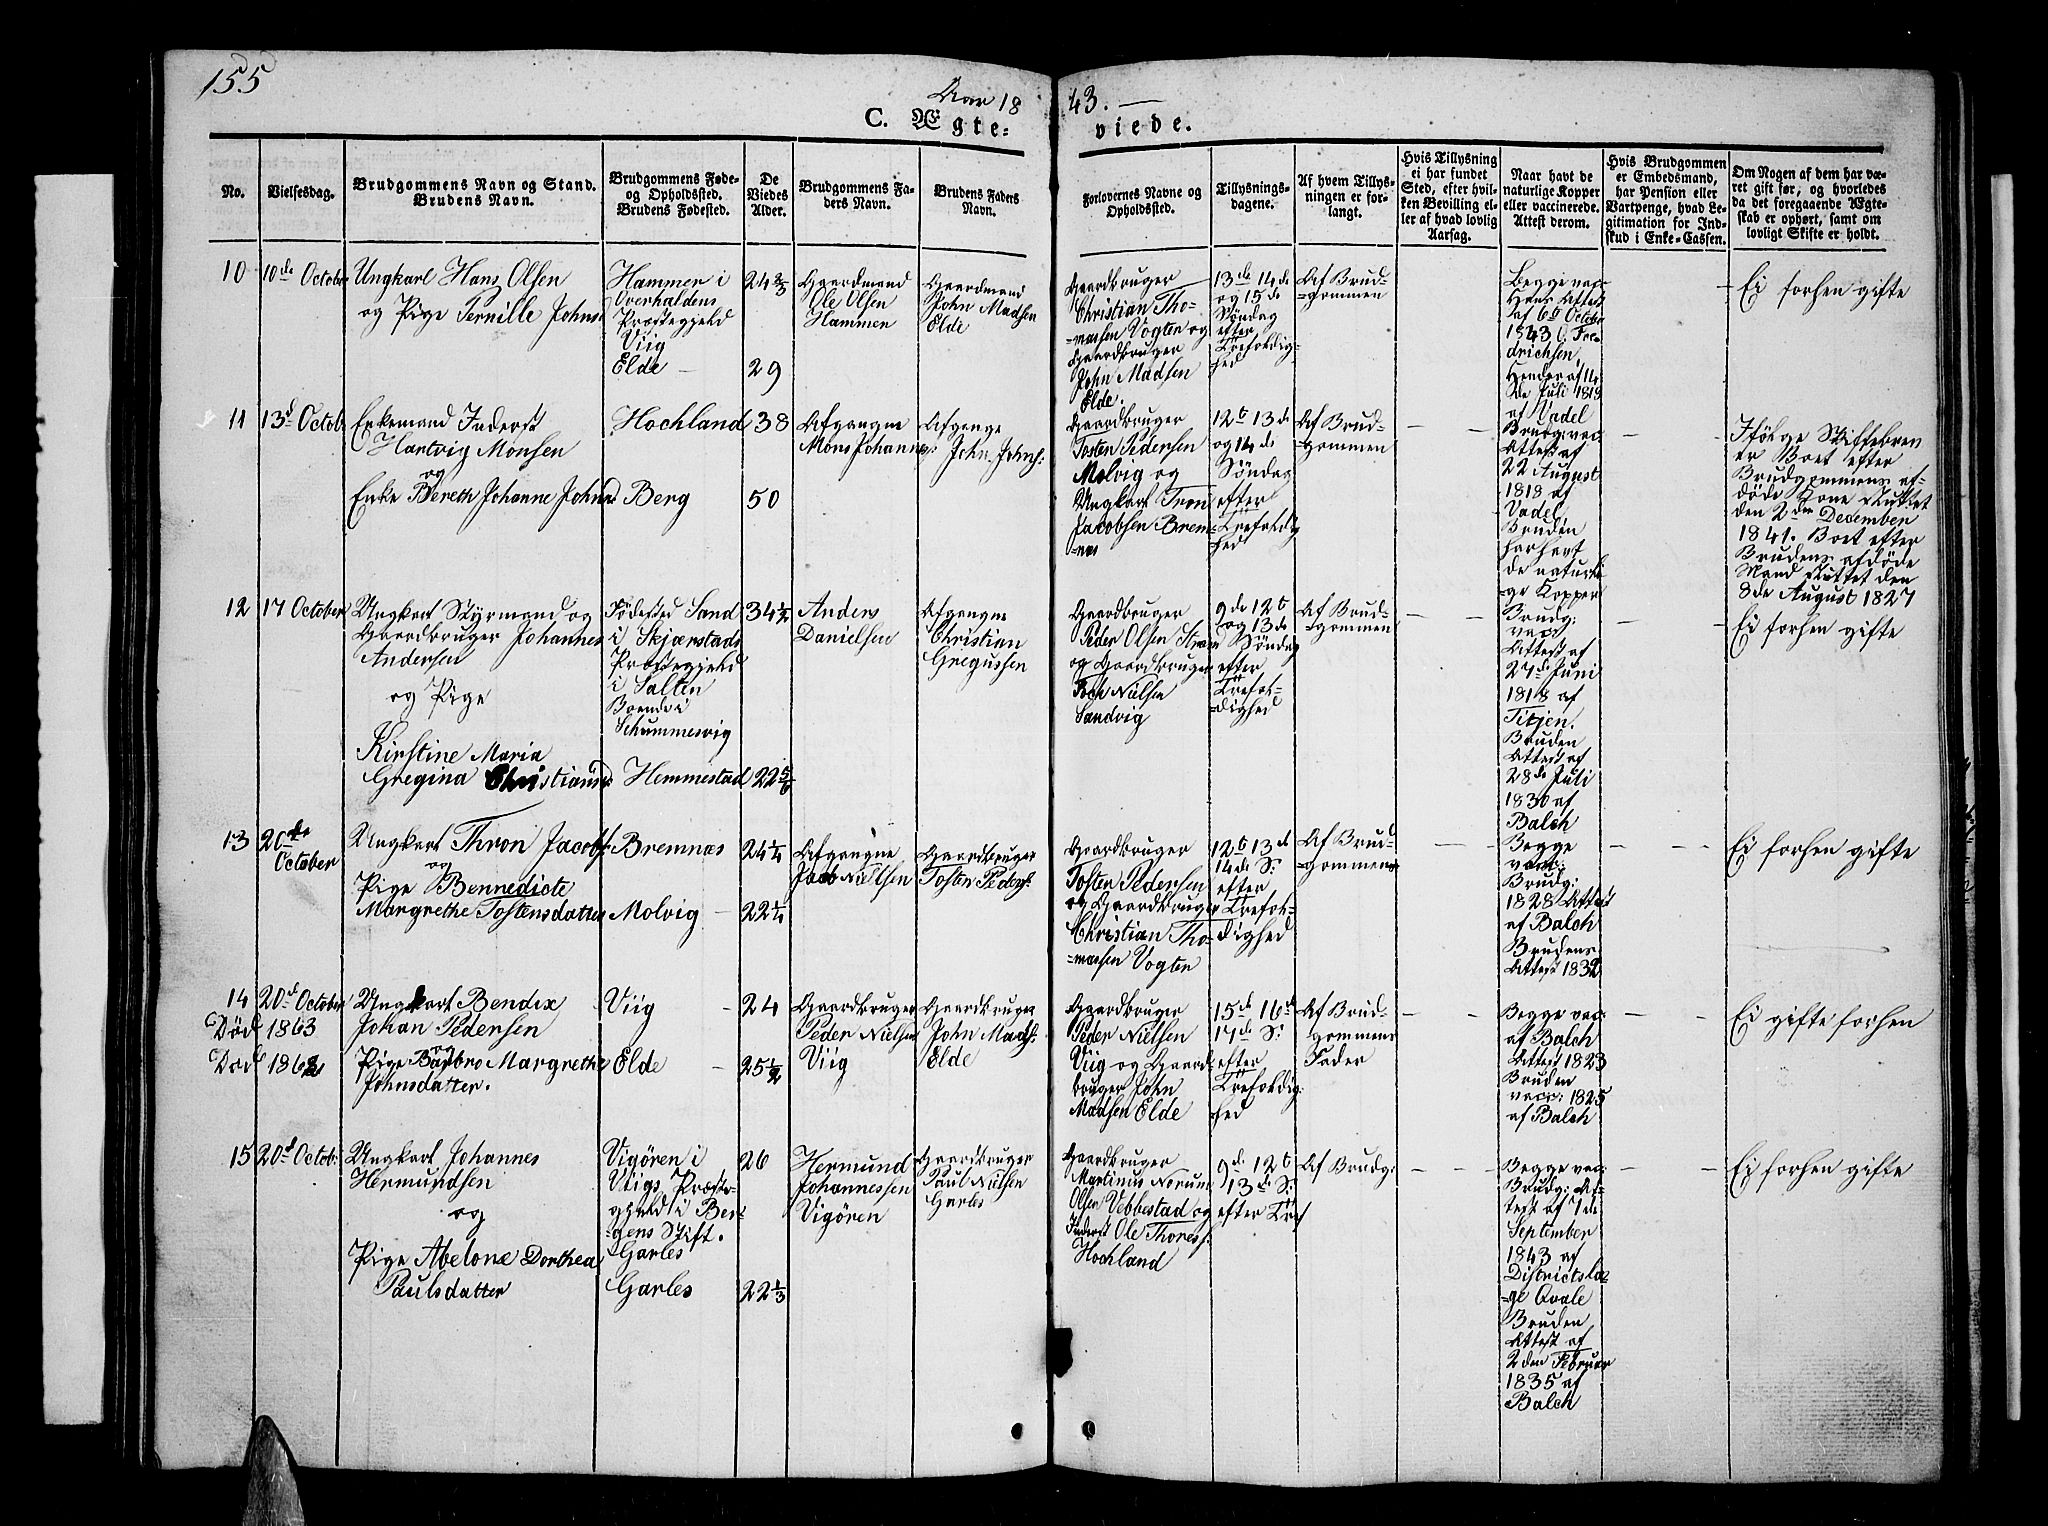 155
Aar 1843. —
C. Ægteviede.
No.
Vielsesdag.
Brudgommens Navn og Stand.
Brudens Navn.
Brudgommens Føde-
og Opholdssted.
Brudens Fødested.
De
Viedes
Alder.
Brudgommens Fa-
ders Navn.
Brudens Faders
Navn.
Forlovernes Navne og
Opholdssted.
Tillysnings-
dagene.
Af hvem Tillys-
ningen er for-
langt.
Hvis Tillysning
ei har fundet
Sted, efter hvil-
ken Bevilling el-
ler af hvad lovlig
Aarsag.
Naar havt de
naturlige Kopper
eller vaccinerede.
Attest derom.
Hvis Brudgommen
er Embedsmand,
har Pension eller
Vartpenge, hvad Le-
gitimation for Ind-
skud i Enke-Cassen.
Om Nogen af dem har væ-
ret gift før, og hvorledes
da det foregaaende Ægte-
skab er ophørt, samt om
lovligt Skifte er holdt.
10
10de October
Ungkarl Hans Olsen
og Pige Pernille Johns:
Hammer i
Overhaldens
Præstegjeld
Viig
Elde —
24 2/3
29
Gaardmand
Ole Olsen
Hammen
Gaardmand
John Madsen
Elde
Gaardbruger
Christian Tho-
-massen Vogten og
Gaardbruger
John Madsen
Elde.
13de 14de
og 15de
Søndag
efter
Trefoldig-
hed
Af Brud-
-gommen
Begge vac:
Hans Attest
af 6te Octobr
1843 C. Fre-
drichsen,
Hendes af 14
de Juli 1819
af Vadel
Ei forhen gifte
11
13d Octob:
Enkemand Inderst
Hartvig Monsen
og
Enke Bereth Johanne Johnsd
Hochland
Berg
38
50
Afgangne
Mons Johannes:
Afgangne
John Johns:
Gaardbruger
Tosten Pedersen
Molvig og
Ungkarl Tron
Jacobsen Brem-
-nes
12te 13de
og 14de
Søndag
efter
Trefoldig-
hed
Af Brud-
-gommen
Brudg: vac:
Attest af
22 August
1818 af
Vadel
Bruden
har havt
de naturli-
ge Kopper
Ifølge Skiftebrev
er Boet efter
Brudgommens af-
døde Kone sluttet
den 2den December
1841. Boet efter
Brudens afdøde
Mand sluttet den
8de August 1827
12
17 October
Ungkarl Styrmand og
Gaardbruger Johannes
Andersen
og Pige
Kirstine Maria
Gregina Christiansd
Fødested Sand
i Skjærstads
Præstegjeld
i Salten
Boende i
Schummesvig
Hemmestad
34 1/2
22 5/6
Anders
Danielsen
Afgangne
Christian
Gregussen
Gaardbruger
Peder Olsen Strand
og Gaardbruger
Nielsen
Sandvig
9de 12te
og 13de
Søndag
efter
Trefol-
-dighed
Af Brud-
-gommen
Brudg:
vac:
Attest af
27de Juni
1818 af
Titjen.
Bruden
Attest af
28de Juli
1830 af
Balch
Ei forhen gifte
13
20de
October
Ungkarl Thron Jacobs:
og
Pige Bennedicte
Margrethe Tostensdatter
Bremnæs
Molvig —
24 1/4
22 1/4
Afgangne
Jacob Nielsen
Gaardbruger
Tosten Peders:
Gaardbruger
Tosten Pedersen
og Gaardbruger
Christian Tho-
-massen Vogten
12te 13de
14de S:
efter
Trefol-
dighed
Af Brud-
-gommen
Begge
vacc:
Brudg:
1828 Attest
af Balch
Brudens
Attest 1832
Ei forhen gifte
14
20d October
Død 1863
Død 1862
Ungkarl Bendix
Johan Pedersen
og
Pige Barbro Margrethe
Johnsdatter.
Viig —
Elde —
24
25 1/2
Gaardbruger
Peder Nielsen
Viig
Gaardbruger
John Mads:
Elde
Gaardbruger
Peder Nielsen
Viig og Gaard-
bruger John
Madsen Elde
15de 16de
17de S:
efter
Trefoldig:
hed
Af Brud-
gommens
Fader
Begge vac:
af Balch
Attest 1823
Bruden
vacc: 1825
af Balch
Ei gifte forhen
15
20d Octob:
Ungkarl Johannes
Hermundsen
og
Pige Abelone Dorthea
Paulsdatter
Vigören i
Viigs Præste-
gjeld i Ber-
-gens Stift.
Garles
Garles
26
22 1/3
Hermund
Johannessen
Vigören
Gaardbruger
Paul Nielsen
Garles
Gaardbruger
Martinus Norum
Olsen Vebbestad og
Inderst Ole Thores:
Hochland
9de 12te
13de S:
efter Tref
Af Brudg:
Begge vac:
Brudg: At-
test af 7de
September
1843 af
Districtslæ-
-ge Qvale
Bruden
Attest af
2den Februar
1835 af
Balch
Ei forhen gifte